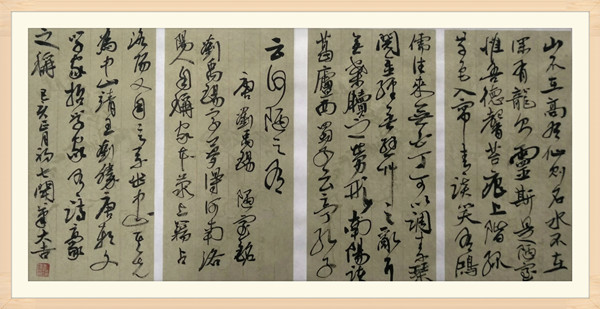 山不在高有仙则名水不在
深有龍则靈斯是陋室
惟吾德馨苔痕上階緑
草色入帘青談笑有鴻
儒往来无白丁可以调素琴
阅金经无丝竹之乱耳
無案牘之勞形南陽诸
葛廬西蜀子云亭孔子
云何陋之有
唐劉禹錫 陋室銘
劉禹錫字夢得河南洛
陽人自稱家本荥上籍占
洛陽又自言系出中山其先
為中山靖王劉勝唐朝文
学家哲学家有詩豪
之稱 己亥正月初七開筆大吉